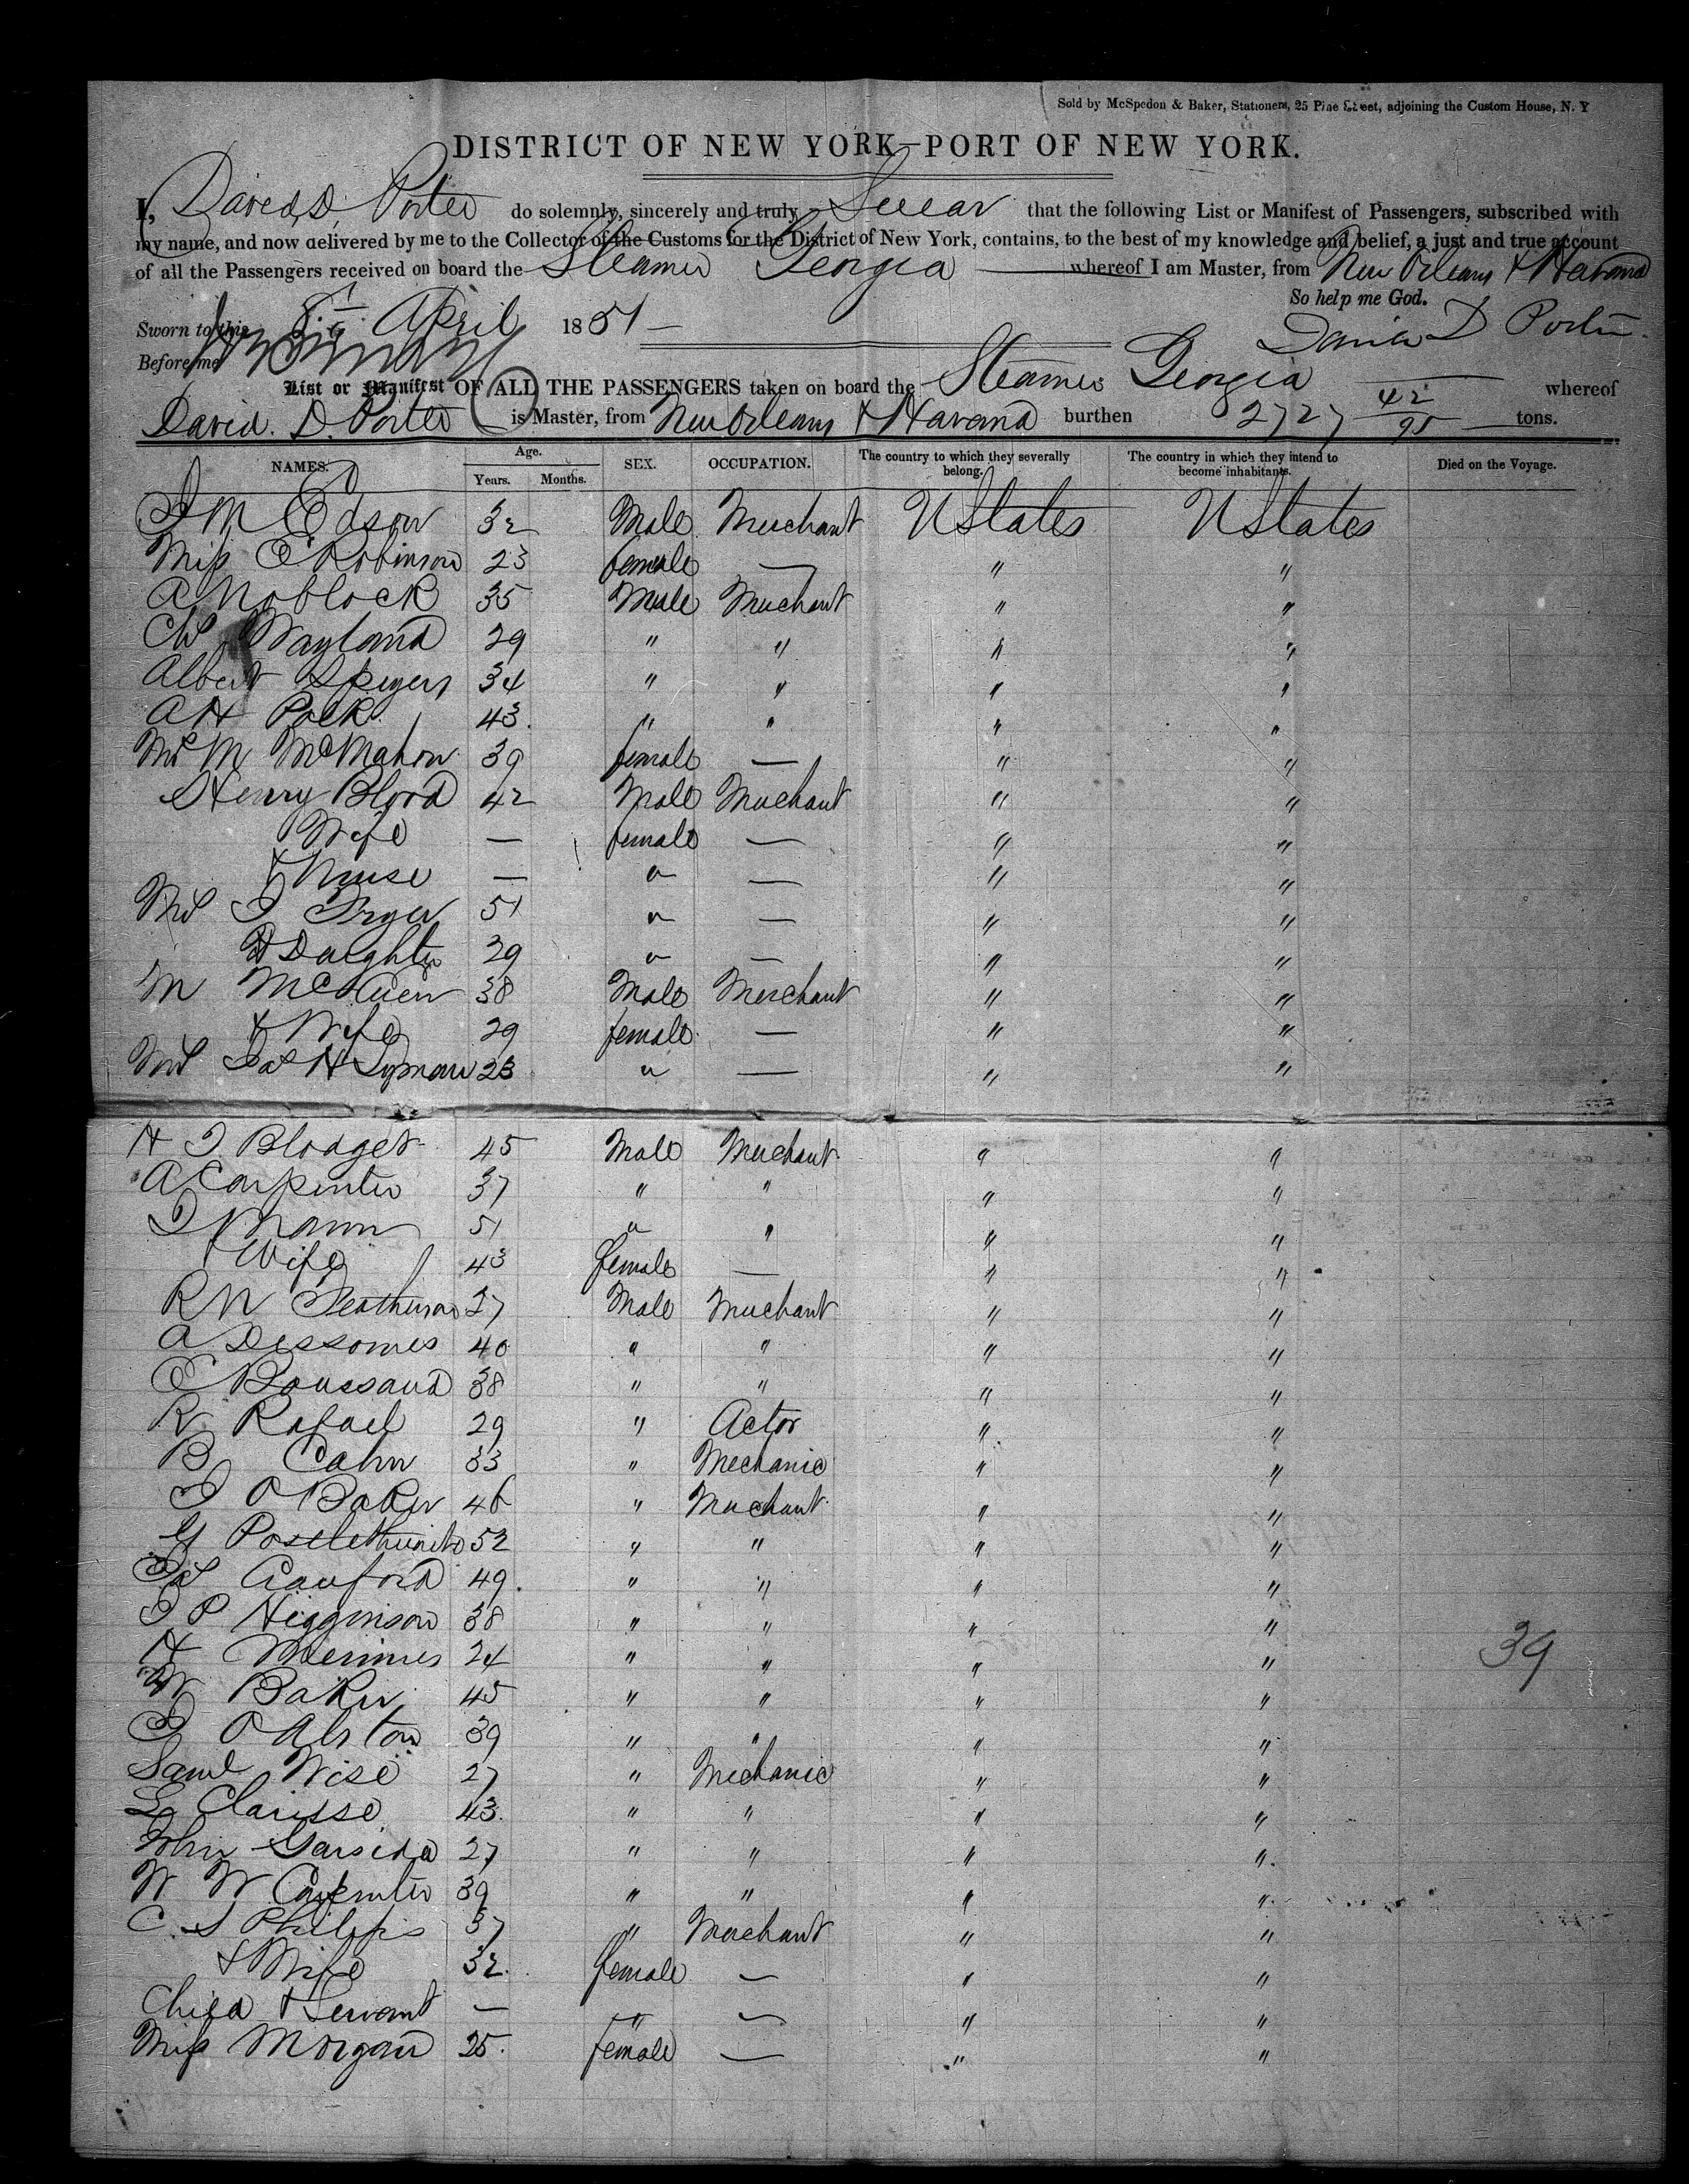 Sold by McSpedon & Baker, Stationers, 25 Pine Street, adjoining the Custom House, N. Y
DISTRICT OF NEW YORK—PORT OF NEW YORK.
I, David D. Porter do solemnly, sincerely and truly Swear that the following List or Manifest of Passengers, subscribed with
my name, and now delivered by me to the Collector of the Customs for the District of New York, contains, to the best of my knowledge and belief, a just and true account
of all the Passengers received on board the Steamer Georgia whereof I am Master, from New Orleans & Havana
So help me God.
Sworn to this 8 April 1851 David D Porter
Before me
List or Manifest OF ALL THE PASSENGERS taken on board the Steamer Georgia whereof
David. D. Porter is Master, from New Orleans & Havana burthen 2727 42/95 tons.
NAMES. Age. Years. Months. SEX. OCCUPATION. The country to which they severally belong. The country in which they intend to become inhabitants. Died on the Voyage.
I M Edson 32 Male Merchant UStates UStates
Miss E Robinson 23 female — " "
A Noblock 35 Male Merchant " "
Wayland 29 " " " "
Albert Speyers 34 " " " "
A H Polk 43. " " " "
Mrs M McMahon 39 female — " "
Henry Blood 42 Male Merchant " "
Wife — female — " "
& Nurse — " — " "
Mrs I Fryer 51 " — " "
& Daughter 29 " — " "
M 38 Male Merchant " "
& Wife 29 female — " "
Mrs Jas H Lyman 23 " — " "
H I Blodget 45 Male Merchant " "
A Carpenter 37 " " " "
I Mann 51 " " " "
& Wife 43 female — " "
R N 27 Male Merchant " "
A Dessomes 40 " " " "
E Boussaud 38 " " " "
R Rafael 29 " Actor " "
B Cahn 33 " Mechanic " "
I O Baker 46 " Merchant " "
G 52 " " " "
49. " " " "
I P Higginson 38 " " " "
H Merimes 24 " " " " 39
W Baker 45 " " " "
I O Alston 39 " " " "
Saml Wise 27 " Mechanic " "
L Clarisse 43. " " " "
John Garsida 27 " " " "
W W Carpenter 39 " " " "
C S Philips 37 " Merchant " "
& Wife 32. female — " "
Child & Servant — " — " "
Miss Morgan 25. female — " "